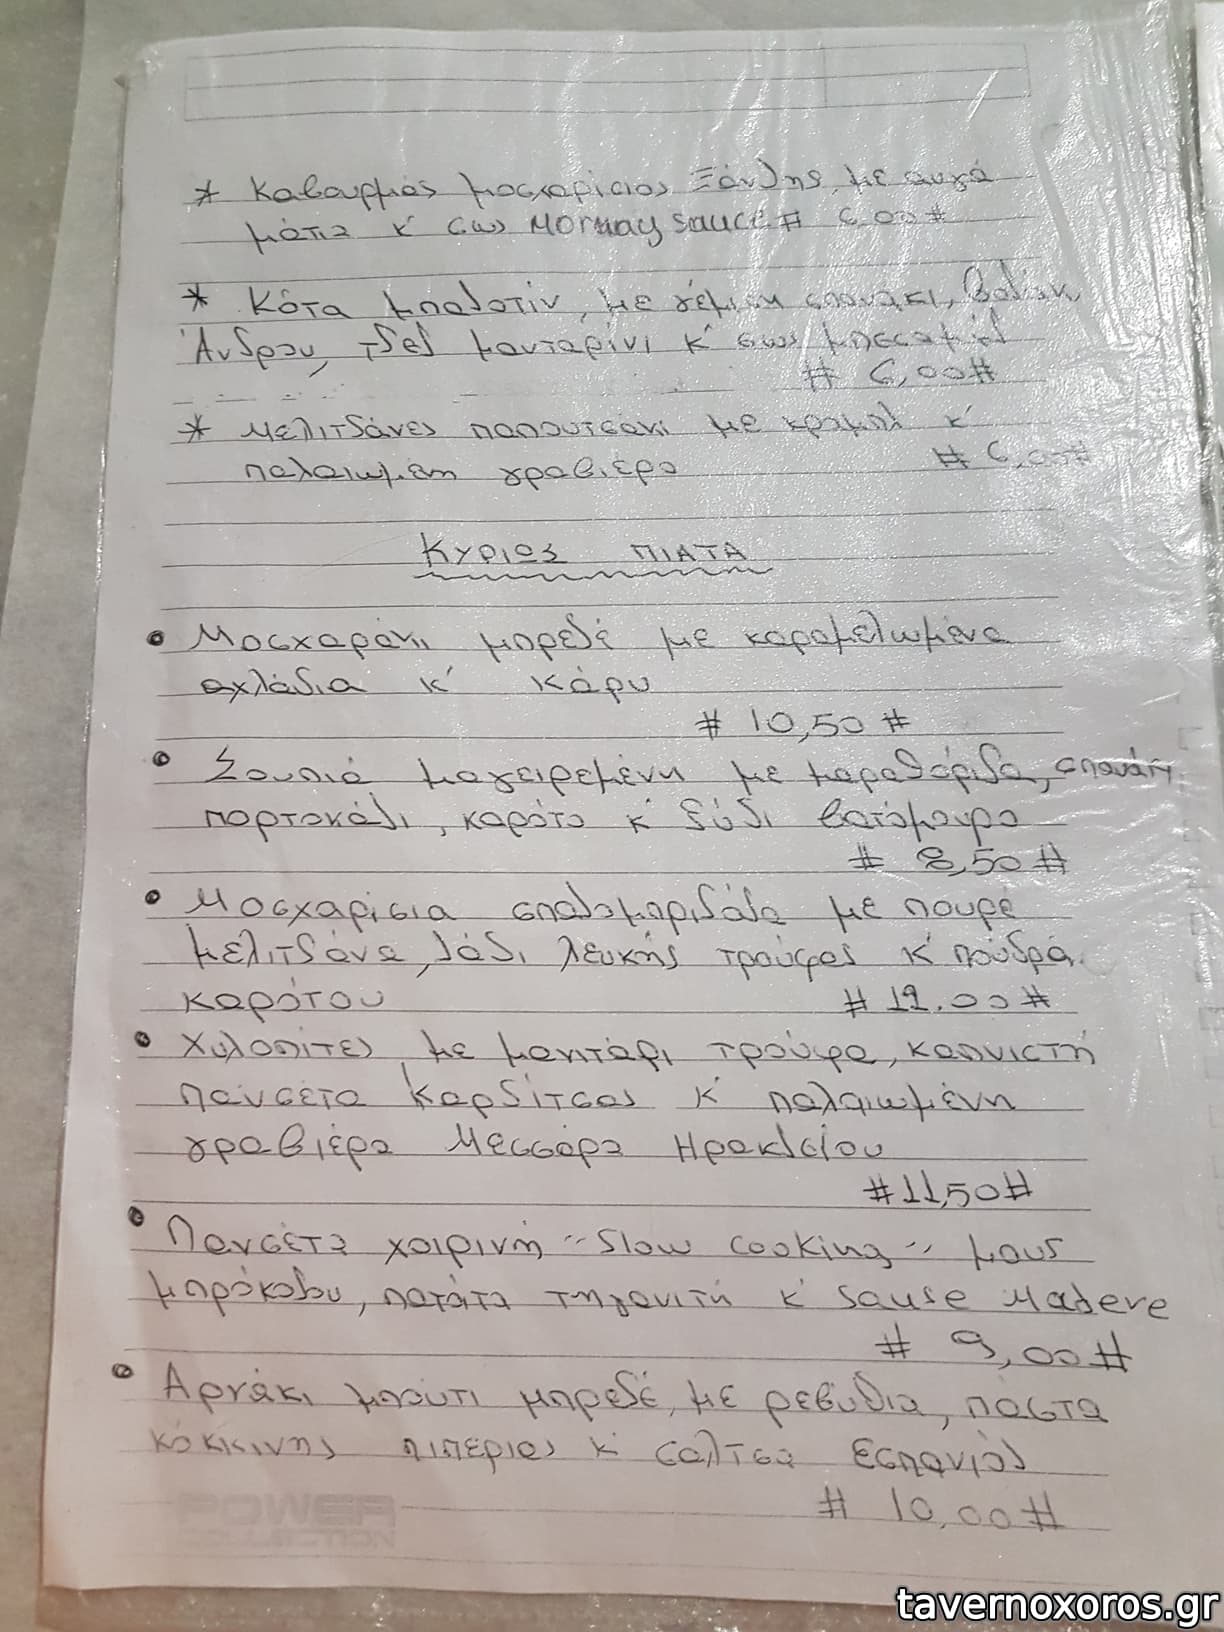 * Καβουρμάς μοσχαρίσιος Ξάνθης, με αυγά
μάτια κ' σως Mornay sauce # 6,00 #
* Κότα μπαλοτίν, με γέμιση σπανάκι, βολάκι
Άνδρου, τζελ μανταρίνι κ' σως μπεσαμέλ
# 6,00 #
* Μελιτζάνες παπουτσάκι με κραμπλ κ'
παλαιωμένη γραβιέρα # 6,00 #
Κυριως ΠΙΑΤΑ
• Μοσχαράκι μπρεζέ με καραμελωμένα
αχλάδια κ' κάρυ
# 10,50 #
• Σουπιά μαγειρεμένη με μαραθόριζα, σπανάκι
πορτοκάλι, καρότο κ' ξύδι βατόμουρο
# 8,50 #
• Μοσχαρίσια σπαλομπριζόλα με πουρέ
μελιτζάνα, λάδι λευκής τρούφας κ' πούδρα
καρότου # 12.00 #
• Χυλοπίτες με μανιτάρι τρούφα, καπνιστή
πανσέτα Καρδίτσας κ' παλαιωμένη
γραβιέρα Μεσσάρα Ηρακλείου
# 11,50 #
• Πανσέτα χοιρινή "Slow cooking" μους
μπρόκολου, πατάτα τηγανιτή κ' Sause Madere
# 9,00 #
• Αρνάκι μπούτι μπρεζέ, με ρεβύθια, πάστα
κόκκινης πιπεριάς κ' σάλτσα Εσπανιόλ
# 10,00 #
tavernoxoros.gr